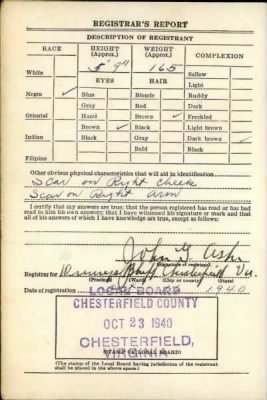 REGISTRAR'S REPORT
DESCRIPTION OF REGISTRANT
RACE HEIGHT (Approx.) WEIGHT (Approx.) COMPLEXION
5' 9" 165
White Sallow
EYES HAIR Light
Negro ✓ Blue Blonde Ruddy
Gray Red Dark
Oriental Hazel Brown ✓ Freckled
Brown ✓ Black Light brown
Indian Black Gray Dark brown ✓
Bald Black
Filipino
Other obvious physical characteristics that will aid in identification
Scar on Right Cheek
Scar on Right Arm
I certify that my answers are true; that the person registered has read or has had
read to him his own answers; that I have witnessed his signature or mark and that
all of his answers of which I have knowledge are true, except as follows:
John
(Signature of registrar)
Registrar for Bluff Chesterfield Va.
(Precinct) (Ward) (City or county) (State)
Date of registration 1940
LOCAL BOARD
CHESTERFIELD COUNTY
OCT 23 1940
CHESTERFIELD,
VIRGINIA
(STAMP OF LOCAL BOARD)
(The stamp of the Local Board having jurisdiction of the registrant
shall be placed in the above space.)